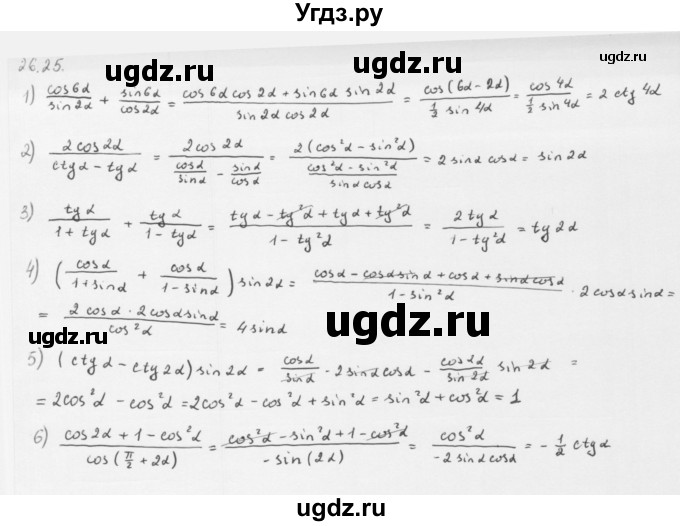 Угдз.ру
ugdz.ru
26.25.
ugdz.ru
1) cos6α/sin2α + sin6α/cos2α = (cos6α cos2α + sin6α sin2α)/(sin2α cos2α) = cos(6α-2α)/(½ sin4α) = cos4α/(½ sin4α) = 2 ctg 4α
ugdz.ru
2) 2cos2α/(ctgα - tgα) = 2cos2α/(cosα/sinα - sinα/cosα) = 2(cos²α - sin²α)/((cos²α - sin²α)/(sinα cosα)) = 2sinα cosα = sin2α
3) tgα/(1 + tgα) + tgα/(1 - tgα) = (tgα - tg²α + tgα + tg²α)/(1 - tg²α) = 2tgα/(1 - tg²α) = tg2α
4) (cosα/(1+sinα) + cosα/(1-sinα)) sin2α = (cosα - cosα sinα + cosα + sinα cosα)/(1 - sin²α) · 2cosα sinα =
= (2cosα · 2cosα sinα)/cos²α = 4sinα
ugdz.ru
ugdz.ru
5) (ctgα - ctg2α) sin2α = cosα/sinα · 2sinα cosα - cos2α/sin2α sin2α =
= 2cos²α - cos²α = 2cos²α - cos²α + sin²α = sin²α + cos²α = 1
6) (cos2α + 1 - cos²α)/cos(π/2 + 2α) = (cos²α - sin²α + 1 - cos²α)/(-sin(2α)) = cos²α/(-2sinα cosα) = -½ ctgα
ugdz.ru
ugdz.ru
ugdz.ru